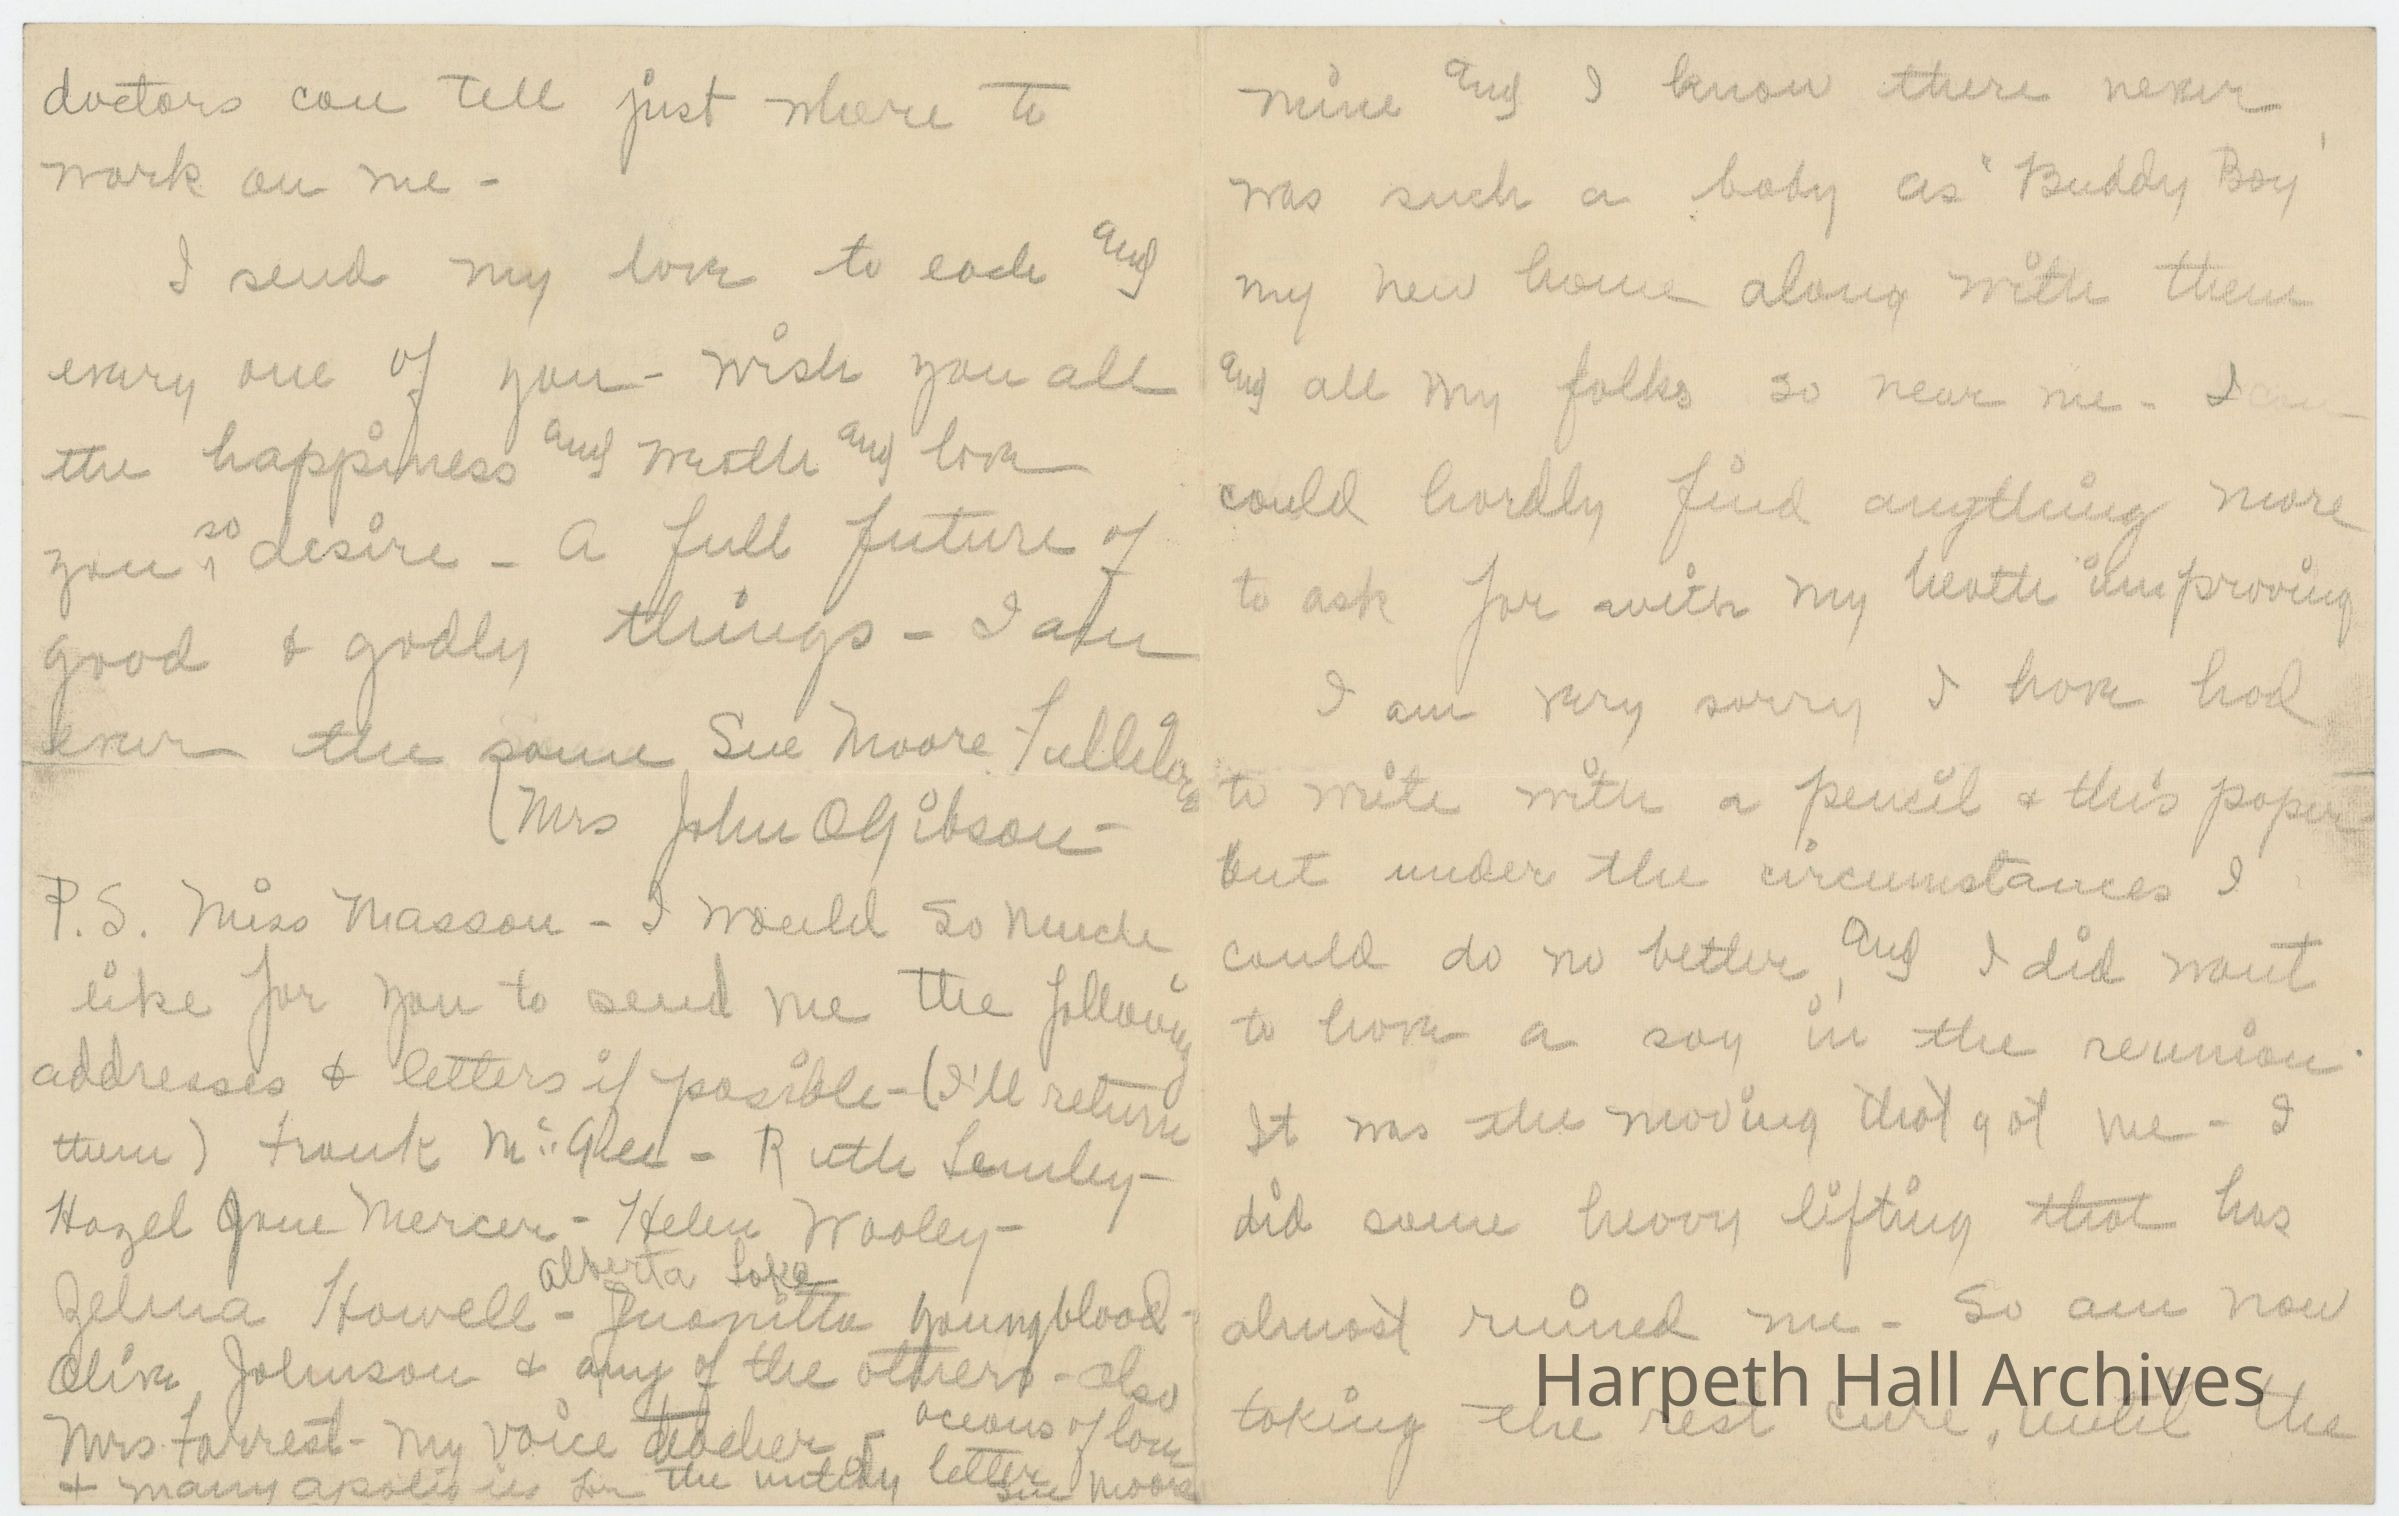 doctors can tell just where to
work on me -
I send my love to each and
every one of you - wish you all
the happiness and wealth and love
you so desire - A full future of
good & godly things - I am
ever the same Sue Moore
(Mrs John O Gibson -
P.S. Miss Masson - I would so much
like for you to send me the following
addresses & letters if possible - (I'll return
them) Frank - Ruth Lemley -
Hazel Jane Mercer - Helen Wooley -
Alberta Loke
Zelma Howell - Juanitta Youngblood -
Olive Johnson & any of the others - also
Mrs. Forrest - my voice teacher - oceans of love
& many apologies for the untidy letter
Sue Moore
mine and I know there never
was such a baby as "Buddy Boy"
my new home along with them
and all my folks so near me - I
could hardly find anything more
to ask for with my health improving
I am very sorry I have had
to write with a pencil & this paper
but under the circumstances I
could do no better, and I did want
to have a say in the reunion.
It was the moving that got me - I
did some heavy lifting that has
almost ruined me - So am now
taking the rest cure, until the
Harpeth Hall Archives